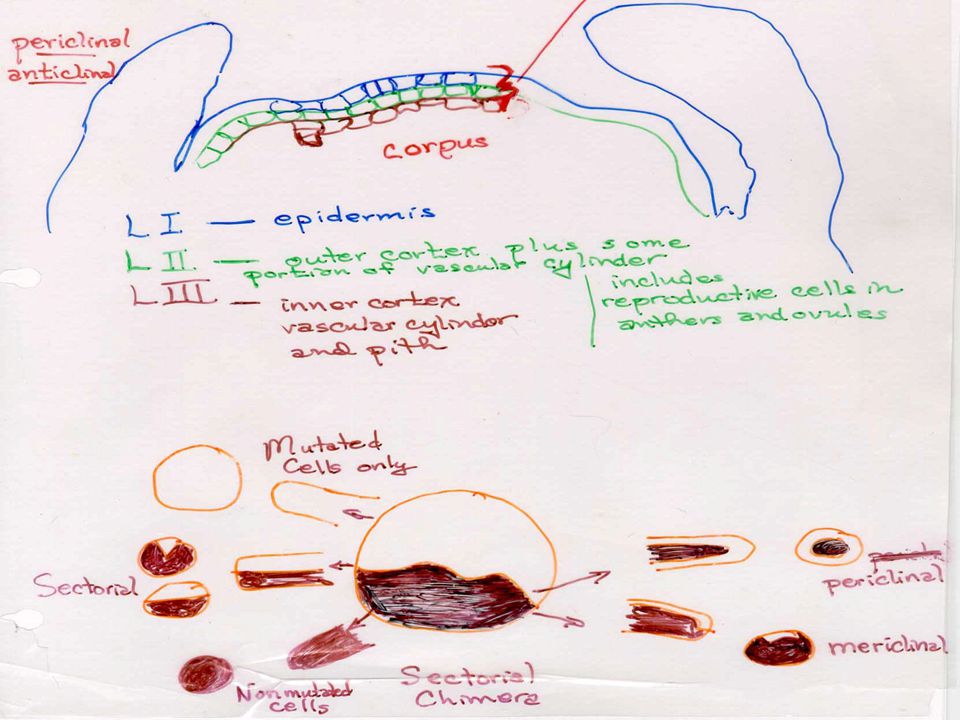 periclinal
anticlinal
corpus
L I. — epidermis
L II. — outer cortex plus some
portion of vascular cylinder
includes
reproductive cells in
anthers and ovules
L III — inner cortex
vascular cylindor
and pith
Mutated
Cells only
Sectorial
periclinal
mericlinal
Nonmutated
cells
Sectorial
Chimera